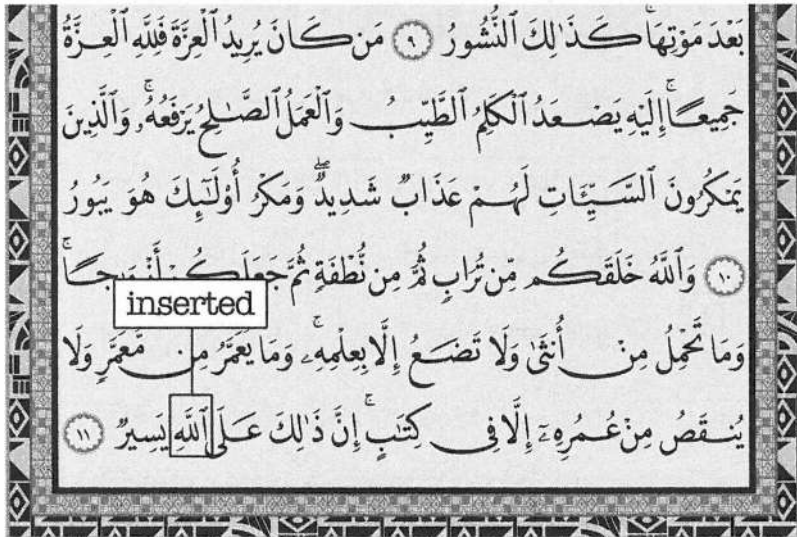 بَعْدَ مَوْتِهَا ۚ كَذَٰلِكَ ٱلنُّشُورُ ٩ مَن كَانَ يُرِيدُ ٱلْعِزَّةَ فَلِلَّهِ ٱلْعِزَّةُ
جَمِيعًا ۚ إِلَيْهِ يَصْعَدُ ٱلْكَلِمُ ٱلطَّيِّبُ وَٱلْعَمَلُ ٱلصَّٰلِحُ يَرْفَعُهُۥ ۚ وَٱلَّذِينَ
يَمْكُرُونَ ٱلسَّيِّـَٔاتِ لَهُمْ عَذَابٌ شَدِيدٌ ۖ وَمَكْرُ أُو۟لَٰٓئِكَ هُوَ يَبُورُ
١٠ وَٱللَّهُ خَلَقَكُم مِّن تُرَابٍ ثُمَّ مِن نُّطْفَةٍ ثُمَّ جَعَلَكُمْ أَزْوَٰجًا ۚ
inserted
وَمَا تَحْمِلُ مِنْ أُنثَىٰ وَلَا تَضَعُ إِلَّا بِعِلْمِهِۦ ۚ وَمَا يُعَمَّرُ مِن مُّعَمَّرٍ وَلَا
يُنقَصُ مِنْ عُمُرِهِۦٓ إِلَّا فِى كِتَٰبٍ ۚ إِنَّ ذَٰلِكَ عَلَى ٱللَّهِ يَسِيرٌ ١١